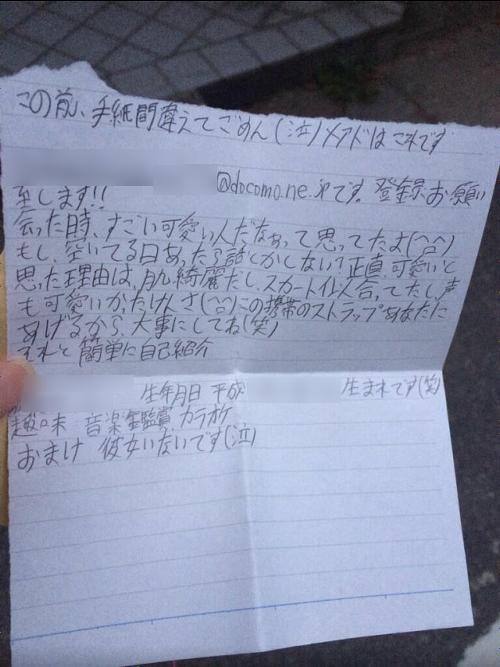 この前、手紙間違えてごめん(泣)メアドはこれです
@docomo.ne.jpです。登録お願い
至します!!
会った時、すごい可愛い人だなぁって思ってたよ(^○^)
もし、空いてる日あったら話とかしない?正直、可愛いと
思った理由は、肌綺麗だし、スカート似合ってたし、声
も可愛いかったけしさ(^○^)この携帯のストラップあなたに
あげるから、大事にしてね(笑)
それと簡単に自己紹介
生年月日 平成 生まれです(笑)
趣味 音楽鑑賞 カラオケ
おまけ 彼女いないです(泣)